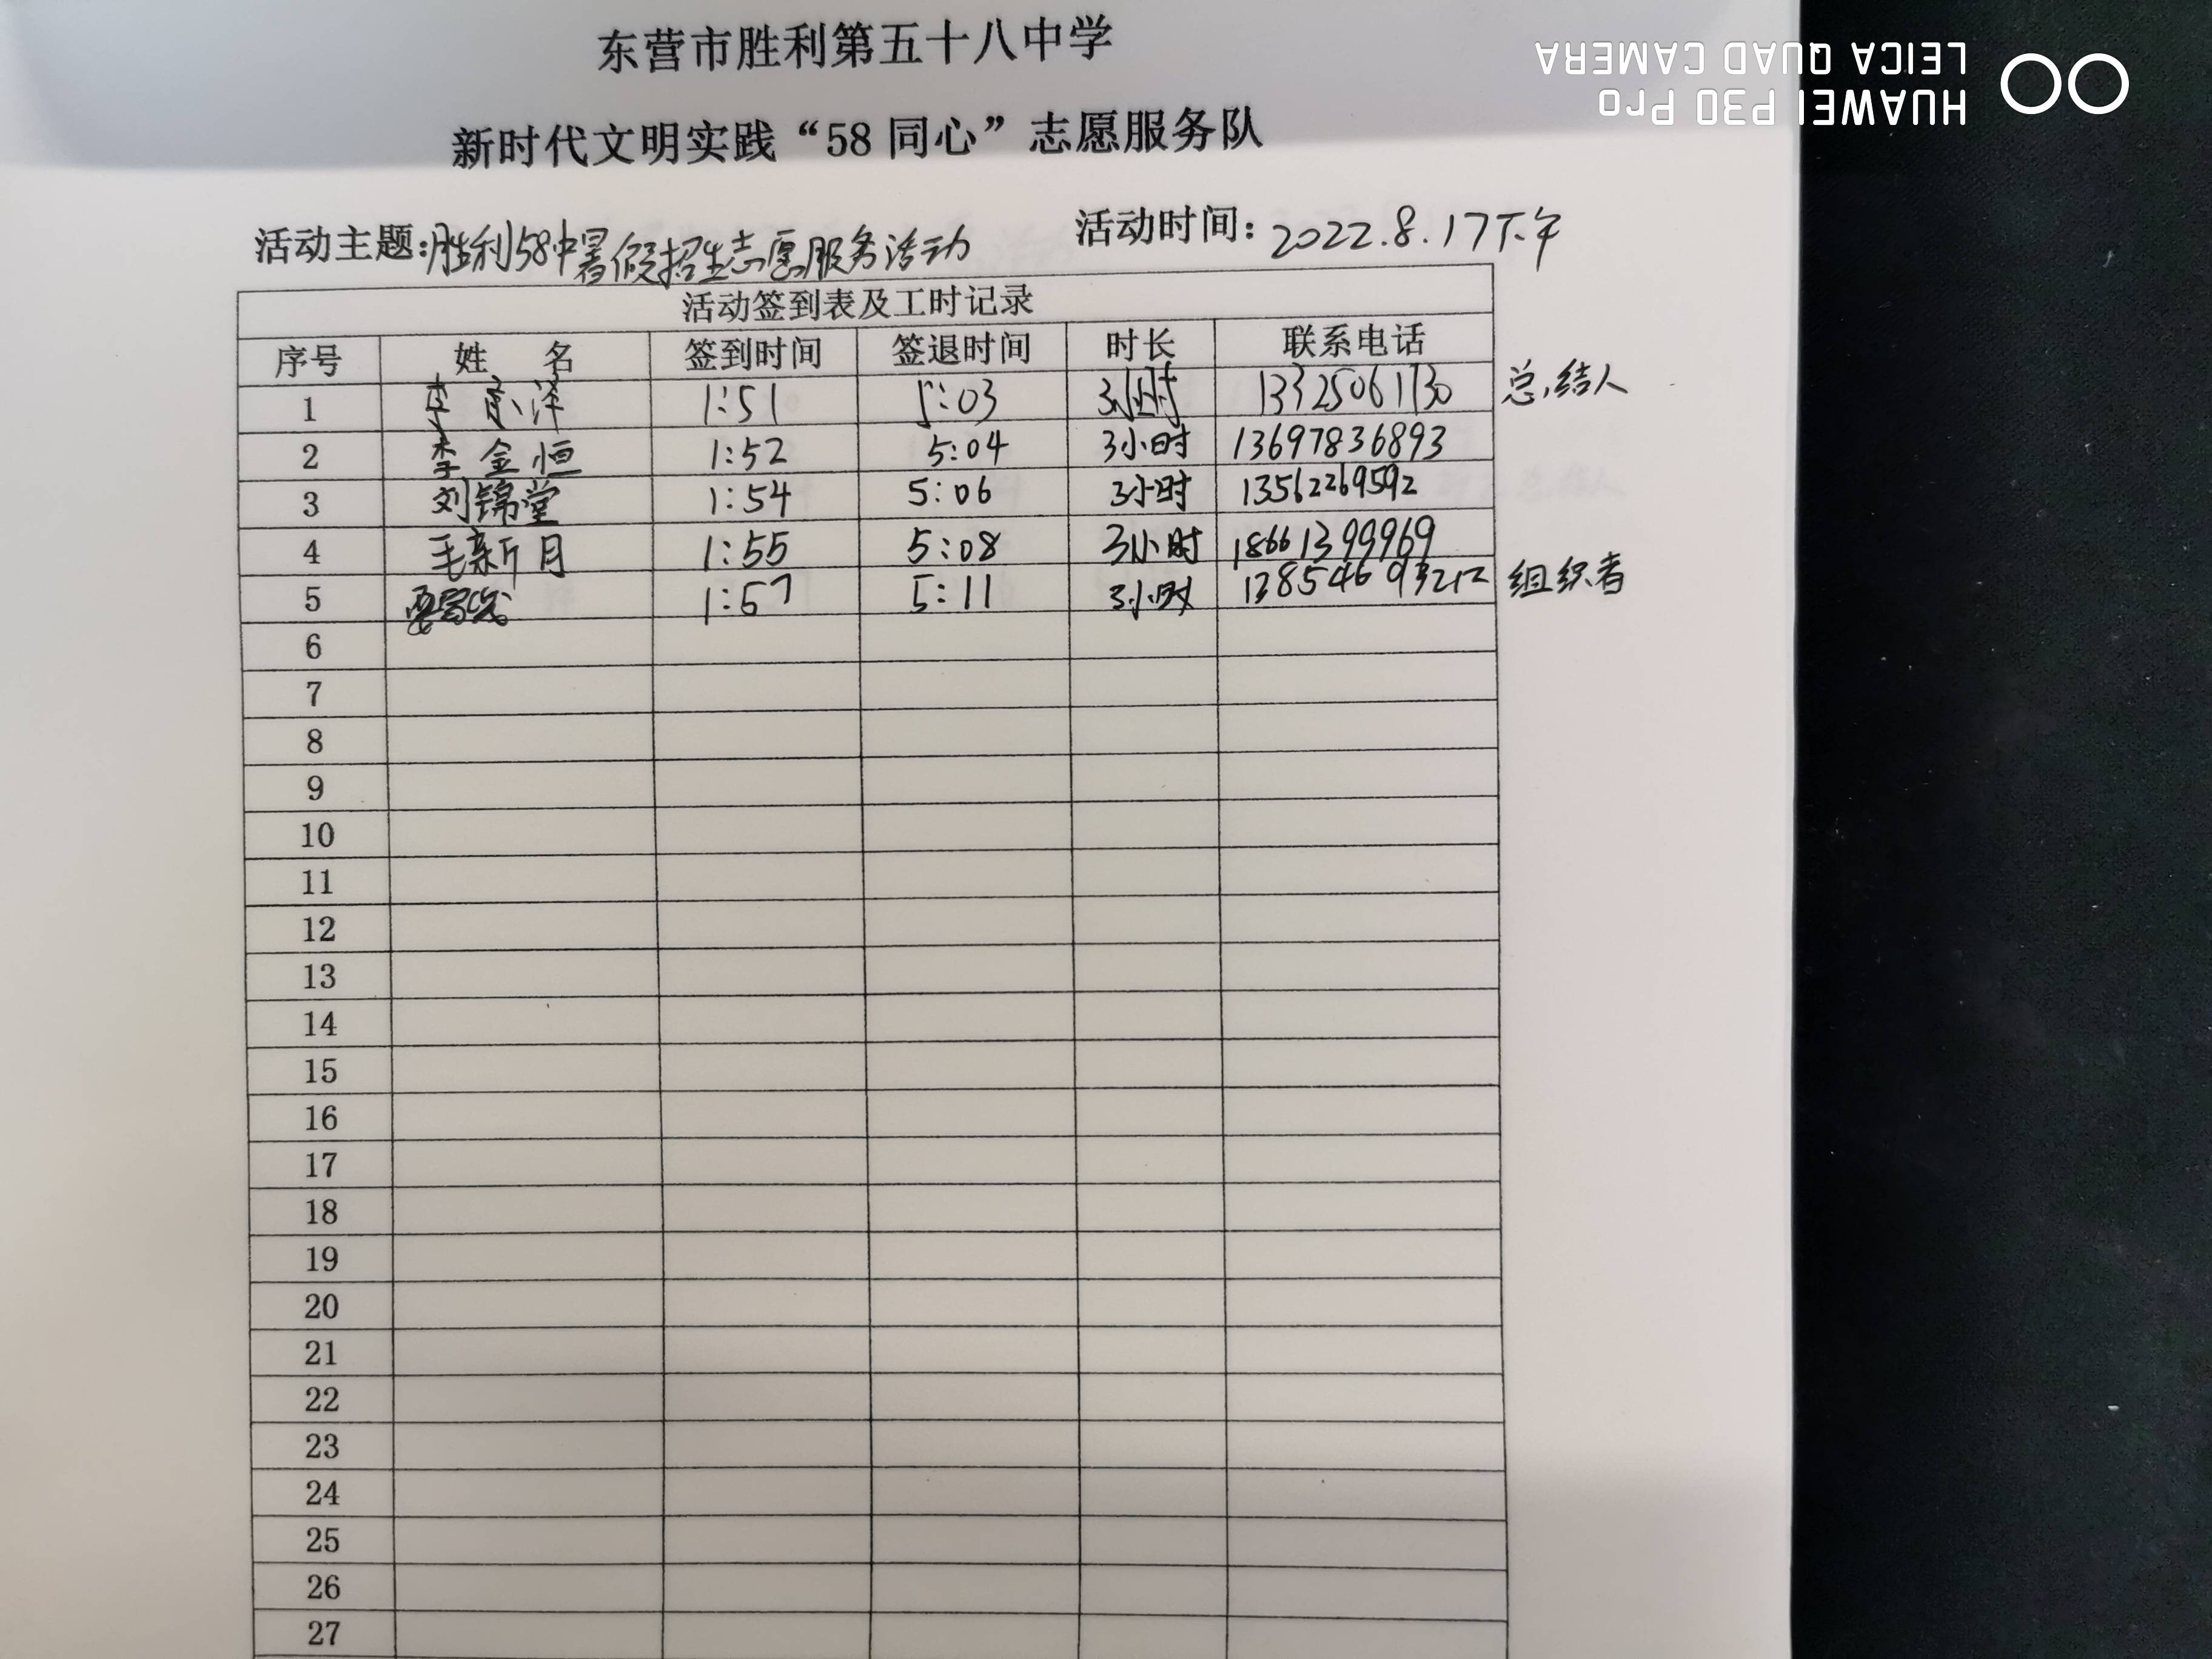 东营市胜利第五十八中学
新时代文明实践“58 同心”志愿服务队
活动主题:胜利58中暑假招生志愿服务活动 活动时间: 2022.8.17下午
活动签到表及工时记录
序号 姓 名 签到时间 签退时间 时长 联系电话
1 泽 1:51 5:03 3小时 13325061730 总结人
2 李金恒 1:52 5:04 3小时 13697836893
3 刘锦堂 1:54 5:06 3小时 13562269592
4 毛新月 1:55 5:08 3小时 18661399969
5 1:57 5:11 3小时 组织者
6
7
8
9
10
11
12
13
14
15
16
17
18
19
20
21
22
23
24
25
26
27
HUAWEI P30 Pro
LEICA QUAD CAMERA